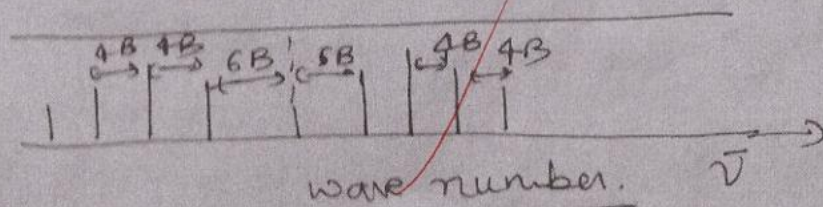 4B 4B 6B 6B 4B 4B
wave number. ν̄